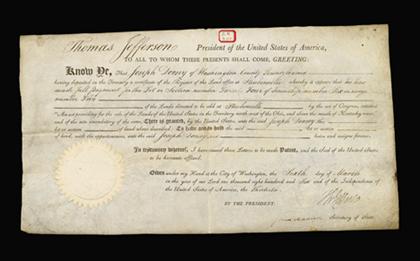 Thomas Jefferson President of the United States of America,
TO ALL TO WHOM THESE PRESENTS SHALL COME, GREETING:
KNOW YE, That Joseph Dorsey of Washington County Pennsylvania
having deposited in the Treasury a certificate of the Register of the Land office at Steubenville whereby it appears that he has
made full payment for the Lot or Section number Three, Four of Township number
number Four
of the Lands directed to be sold at Steubenville by the act of Congress, entitled
"An act providing for the sale of the Lands of the United States in the Territory north west of the Ohio, and above the mouth of Kentucky river"
and of the acts amendatory of the same, THERE IS GRANTED, by the United States, unto the said Joseph Dorsey the
lot or section of land above described: TO HAVE AND TO HOLD the said lot or section
of land, with the appurtenances, unto the said Joseph Dorsey heirs and assigns forever.
IN TESTIMONY WHEREOF, I have caused these Letters to be made PATENT, and the Seal of the United States
to be hereunto affixed.
GIVEN under my Hand at the City of Washington, the Sixth day of March
in the year of our Lord one thousand eight hundred and Six and of the Independence of
the United States of America, the Thirtieth
BY THE PRESIDENT: Th Jefferson
James Madison Secretary of State